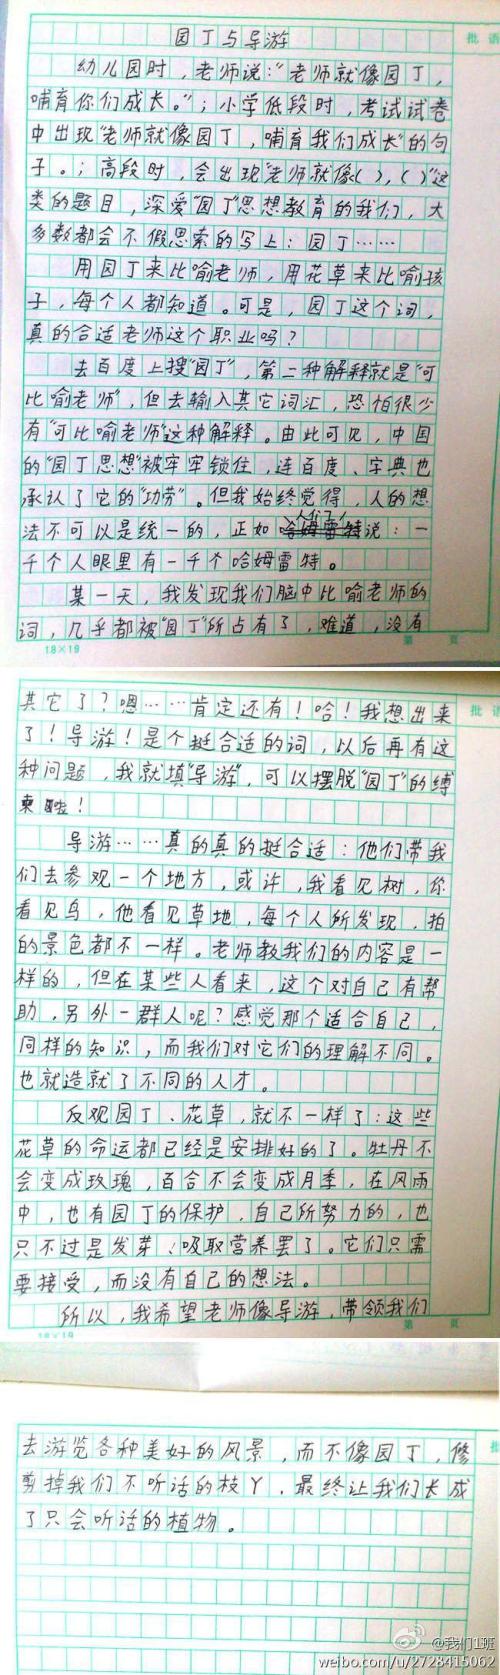 批语
园丁与导游
幼儿园时，老师说：“老师就像园丁，
哺育你们成长。”；小学低段时，考试试卷
中出现“老师就像园丁，哺育我们成长”的句
子。；高段时，会出现“老师就像（），（）”这
类的题目，深爱“园丁”思想教育的我们，大
多数都会不假思索的写上：园丁……
用园丁来比喻老师，用花草来比喻孩
子，每个人都知道。可是，园丁这个词，
真的合适老师这个职业吗？
去百度上搜“园丁”，第二种解释就是“可
比喻老师”，但去输入其它词汇，恐怕很少
有“可比喻老师”这种解释。由此可见，中国
的“园丁思想”被牢牢锁住，连百度、字典也
承认了它的“功劳”。但我始终觉得，人的想
法不可以是统一的，正如人们说：一
千个人眼里有一千个哈姆雷特。
某一天，我发现我们脑中比喻老师的
词，几乎都被“园丁”所占有了，难道，没有
18×19 第 页
批语
其它了？嗯……肯定还有！哈！我想出来
了！导游！是个挺合适的词，以后再有这
种问题，我就填“导游”，可以摆脱“园丁”的缚
束啦！
导游……真的真的挺合适：他们带我
们去参观一个地方，或许，我看见树，你
看见鸟，他看见草地，每个人所发现，拍
的景色都不一样。老师教我们的内容是一
样的，但在某些人看来，这个对自己有帮
助，另外一群人呢？感觉那个适合自己，
同样的知识，而我们对它们的理解不同。
也就造就了不同的人才。
反观园丁、花草，就不一样了：这些
花草的命运都已经是安排好的了。牡丹不
会变成玫瑰，百合不会变成月季，在风雨
中，也有园丁的保护，自己所努力的，也
只不过是发芽、吸取营养罢了。它们只需
要接受，而没有自己的想法。
所以，我希望老师像导游，带领我们
18×19 第 页
去游览各种美好的风景，而不像园丁，修
剪掉我们不听话的枝丫，最终让我们长成
了只会听话的植物。
@我们1班
weibo.com/u/2728415062